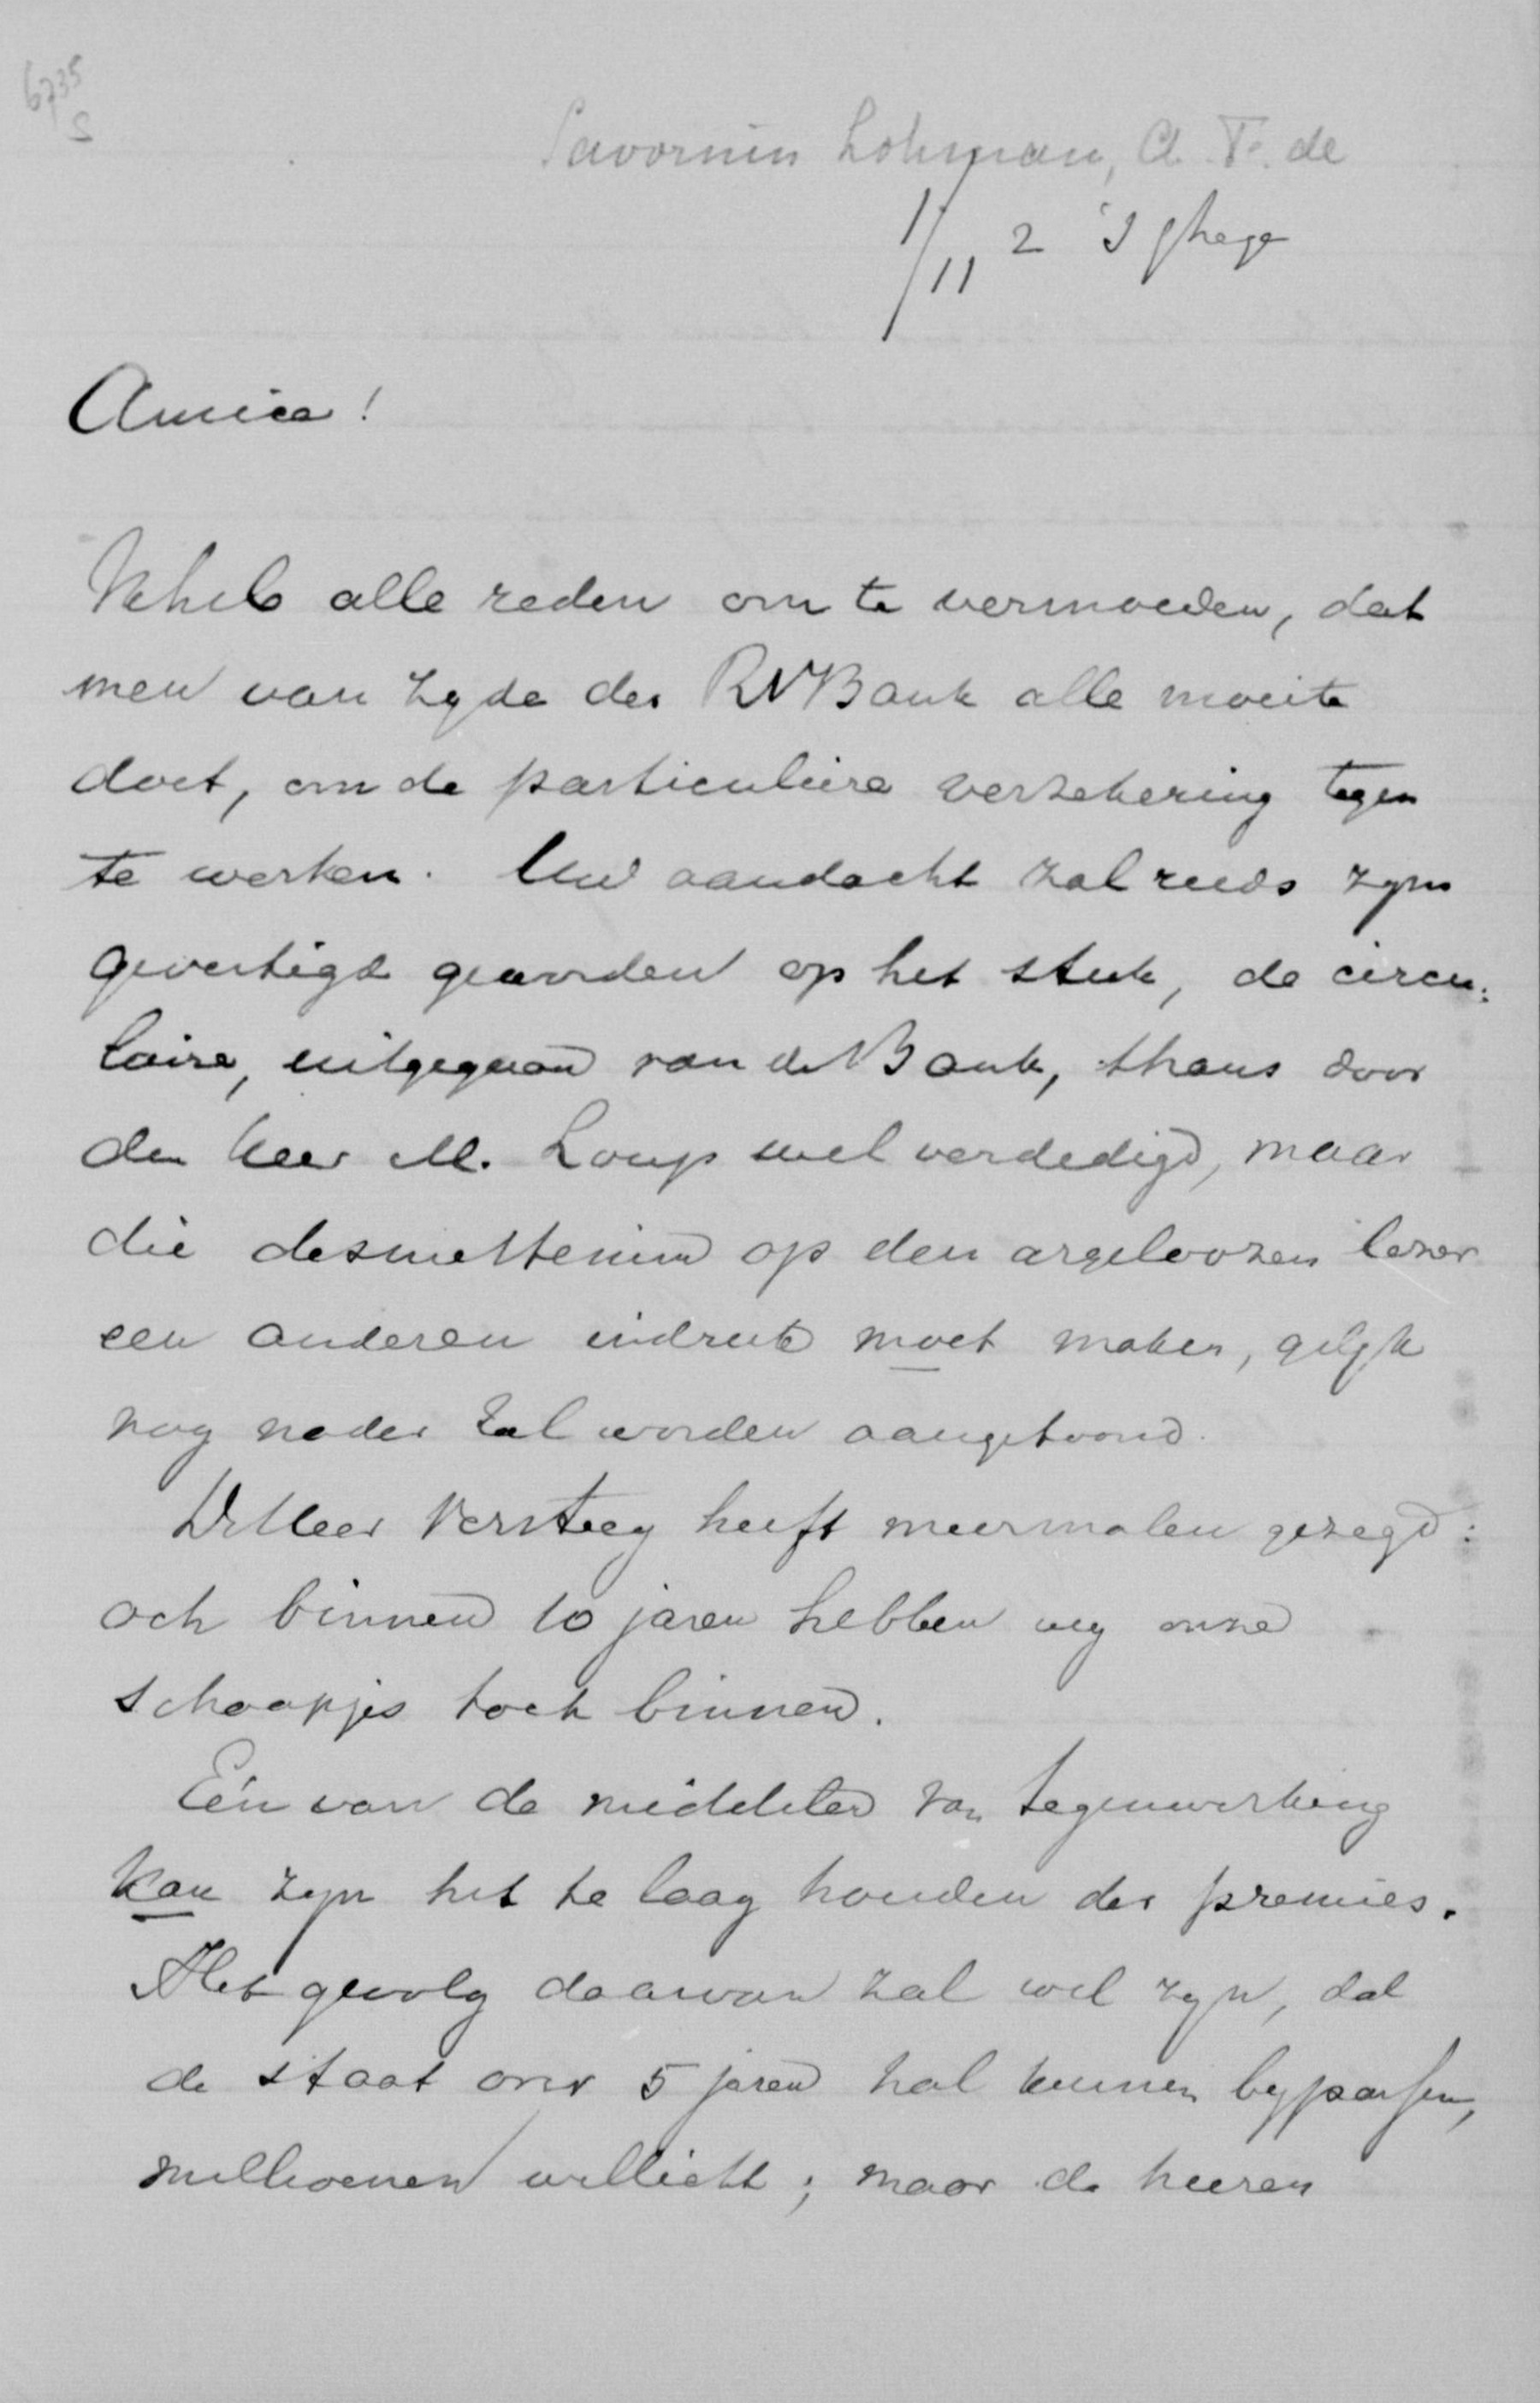 6735
S
Savornin Lohman, A. F. de
1/11 2 's Ghage
Amice!
Ik heb alle reden om te vermoeden, dat
men van zyde der RVBank alle moeite
doet, om de particuliere verzekering tegen
te werken. Uw aandacht zal reeds zyn
gevestigd geworden op het stuk, de circu:
laire, uitgegaan van de Bank, thans door
den heer M. Loup wel verdedigd, maar
die desniettemin op den argeloozen lezer
een anderen indruk moet maken, gelyk
nog nader zal worden aangetoond.
De Heer Versteeg heeft meermalen gezegd:
och binnen 10 jaren hebben wy onze
schaapjes toch binnen.
Eén van de middelen van tegenwerking
kan zyn het te laag houden der premies.
Het gevolg daarvan zal wel zyn, dat
de staat over 5 jaren zal kunnen bypassen,
millioenen wellicht; maar de heeren